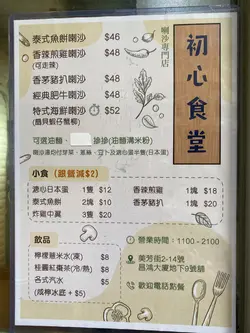 喇沙專門店
初心食堂
泰式魚餅喇沙 $46
香辣煎雞喇沙 $48
(可走辣)
香茅豬扒喇沙 $48
經典肥牛喇沙 $48
特式海鮮喇沙 $52
(扇貝蝦仔蟹柳)
可選油麵、
小食 (跟餐減$2)
溏心日本蛋 1隻 $12
泰式魚餅 2塊 $10
炸雞中翼 3隻 $20
香辣煎雞 1塊 $18
香茅豬扒 1塊 $20
飲品
檸檬薏米水(凍) $8
桂圓紅棗茶(冷/熱) $8
各式汽水 $8
(咸檸冰底 + $5)
營業時間：1100 - 2100
美芳街2-14號
昌鴻大廈地下9號舖
歡迎電話點餐